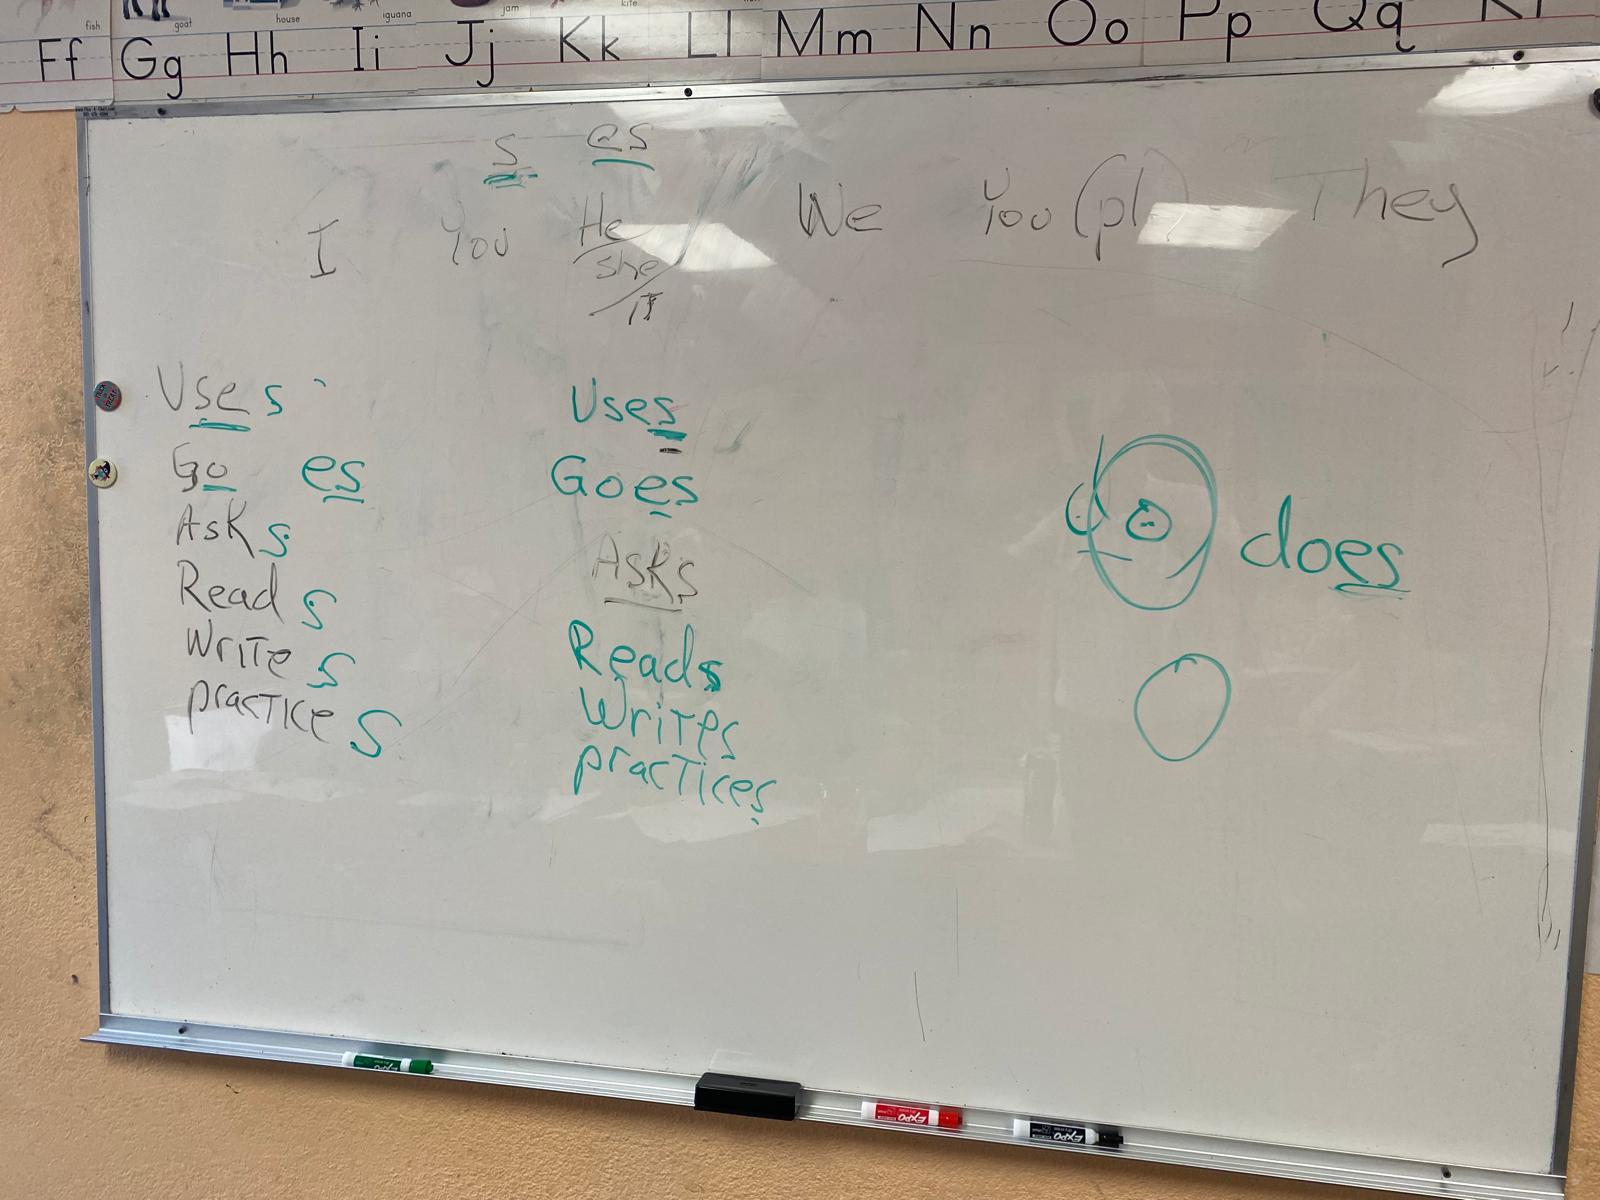 fish goat house iguana jam kite
Ff Gg Hh Ii Jj Kk Ll Mm Nn Oo Pp Qq
s es
I You He/she/iT We You (pl) They
Use s Uses
Go es Goes
Ask s Asks
Read s Reads
WriTe s WriTes
pracTice s pracTices
do does
EXPO
EXPO
EXPO